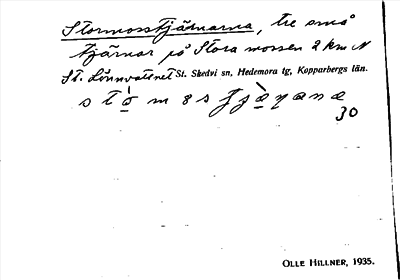 Stormosstjärnarna, tre små
tjärnar på Stora mossen 2 km N
St. Lönnvattnet St. Skedvi sn, Hedemora tg, Kopparbergs län.
30
OLLE HILLNER, 1935.